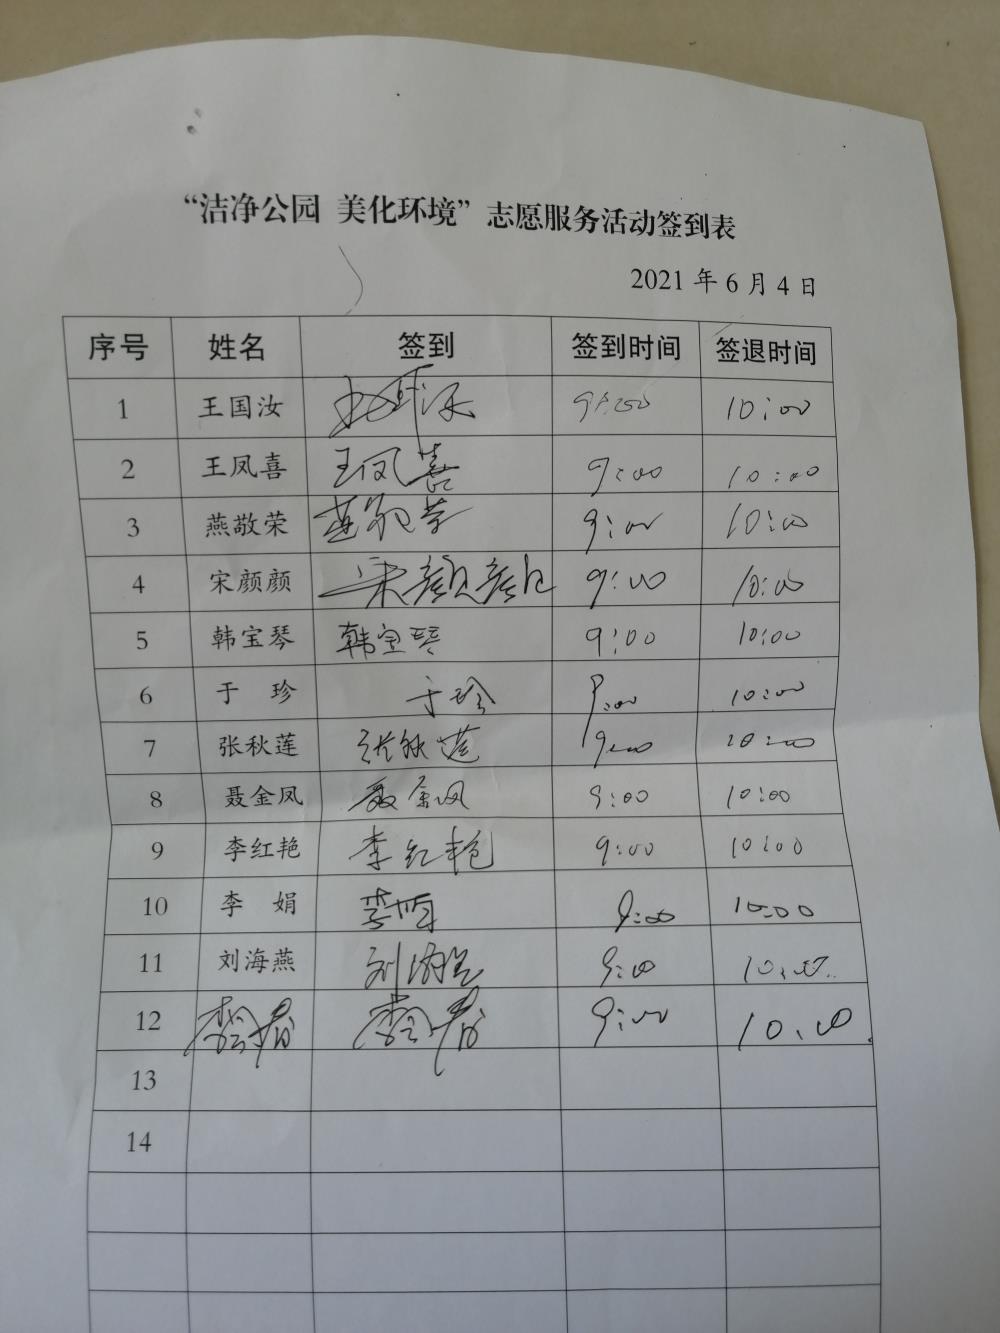 “洁净公园 美化环境”志愿服务活动签到表
2021年6月4日
序号 姓名 签到 签到时间 签退时间
1 王国汝 10:00
2 王凤喜 王凤喜 9:00 10:00
3 燕敬荣 燕敬荣 9:00 10:00
4 宋颜颜 宋颜颜 9:00 10:00
5 韩宝琴 韩宝琴 9:00 10:00
6 于 珍 于珍 9:00 10:00
7 张秋莲 张秋莲 9:00 10:00
8 聂金凤 聂金凤 9:00 10:00
9 李红艳 李红艳 9:00 10:00
10 李 娟 李娟 9:00 10:00
11 刘海燕 刘海燕 9:00 10:00
12 9:00 10:00
13
14